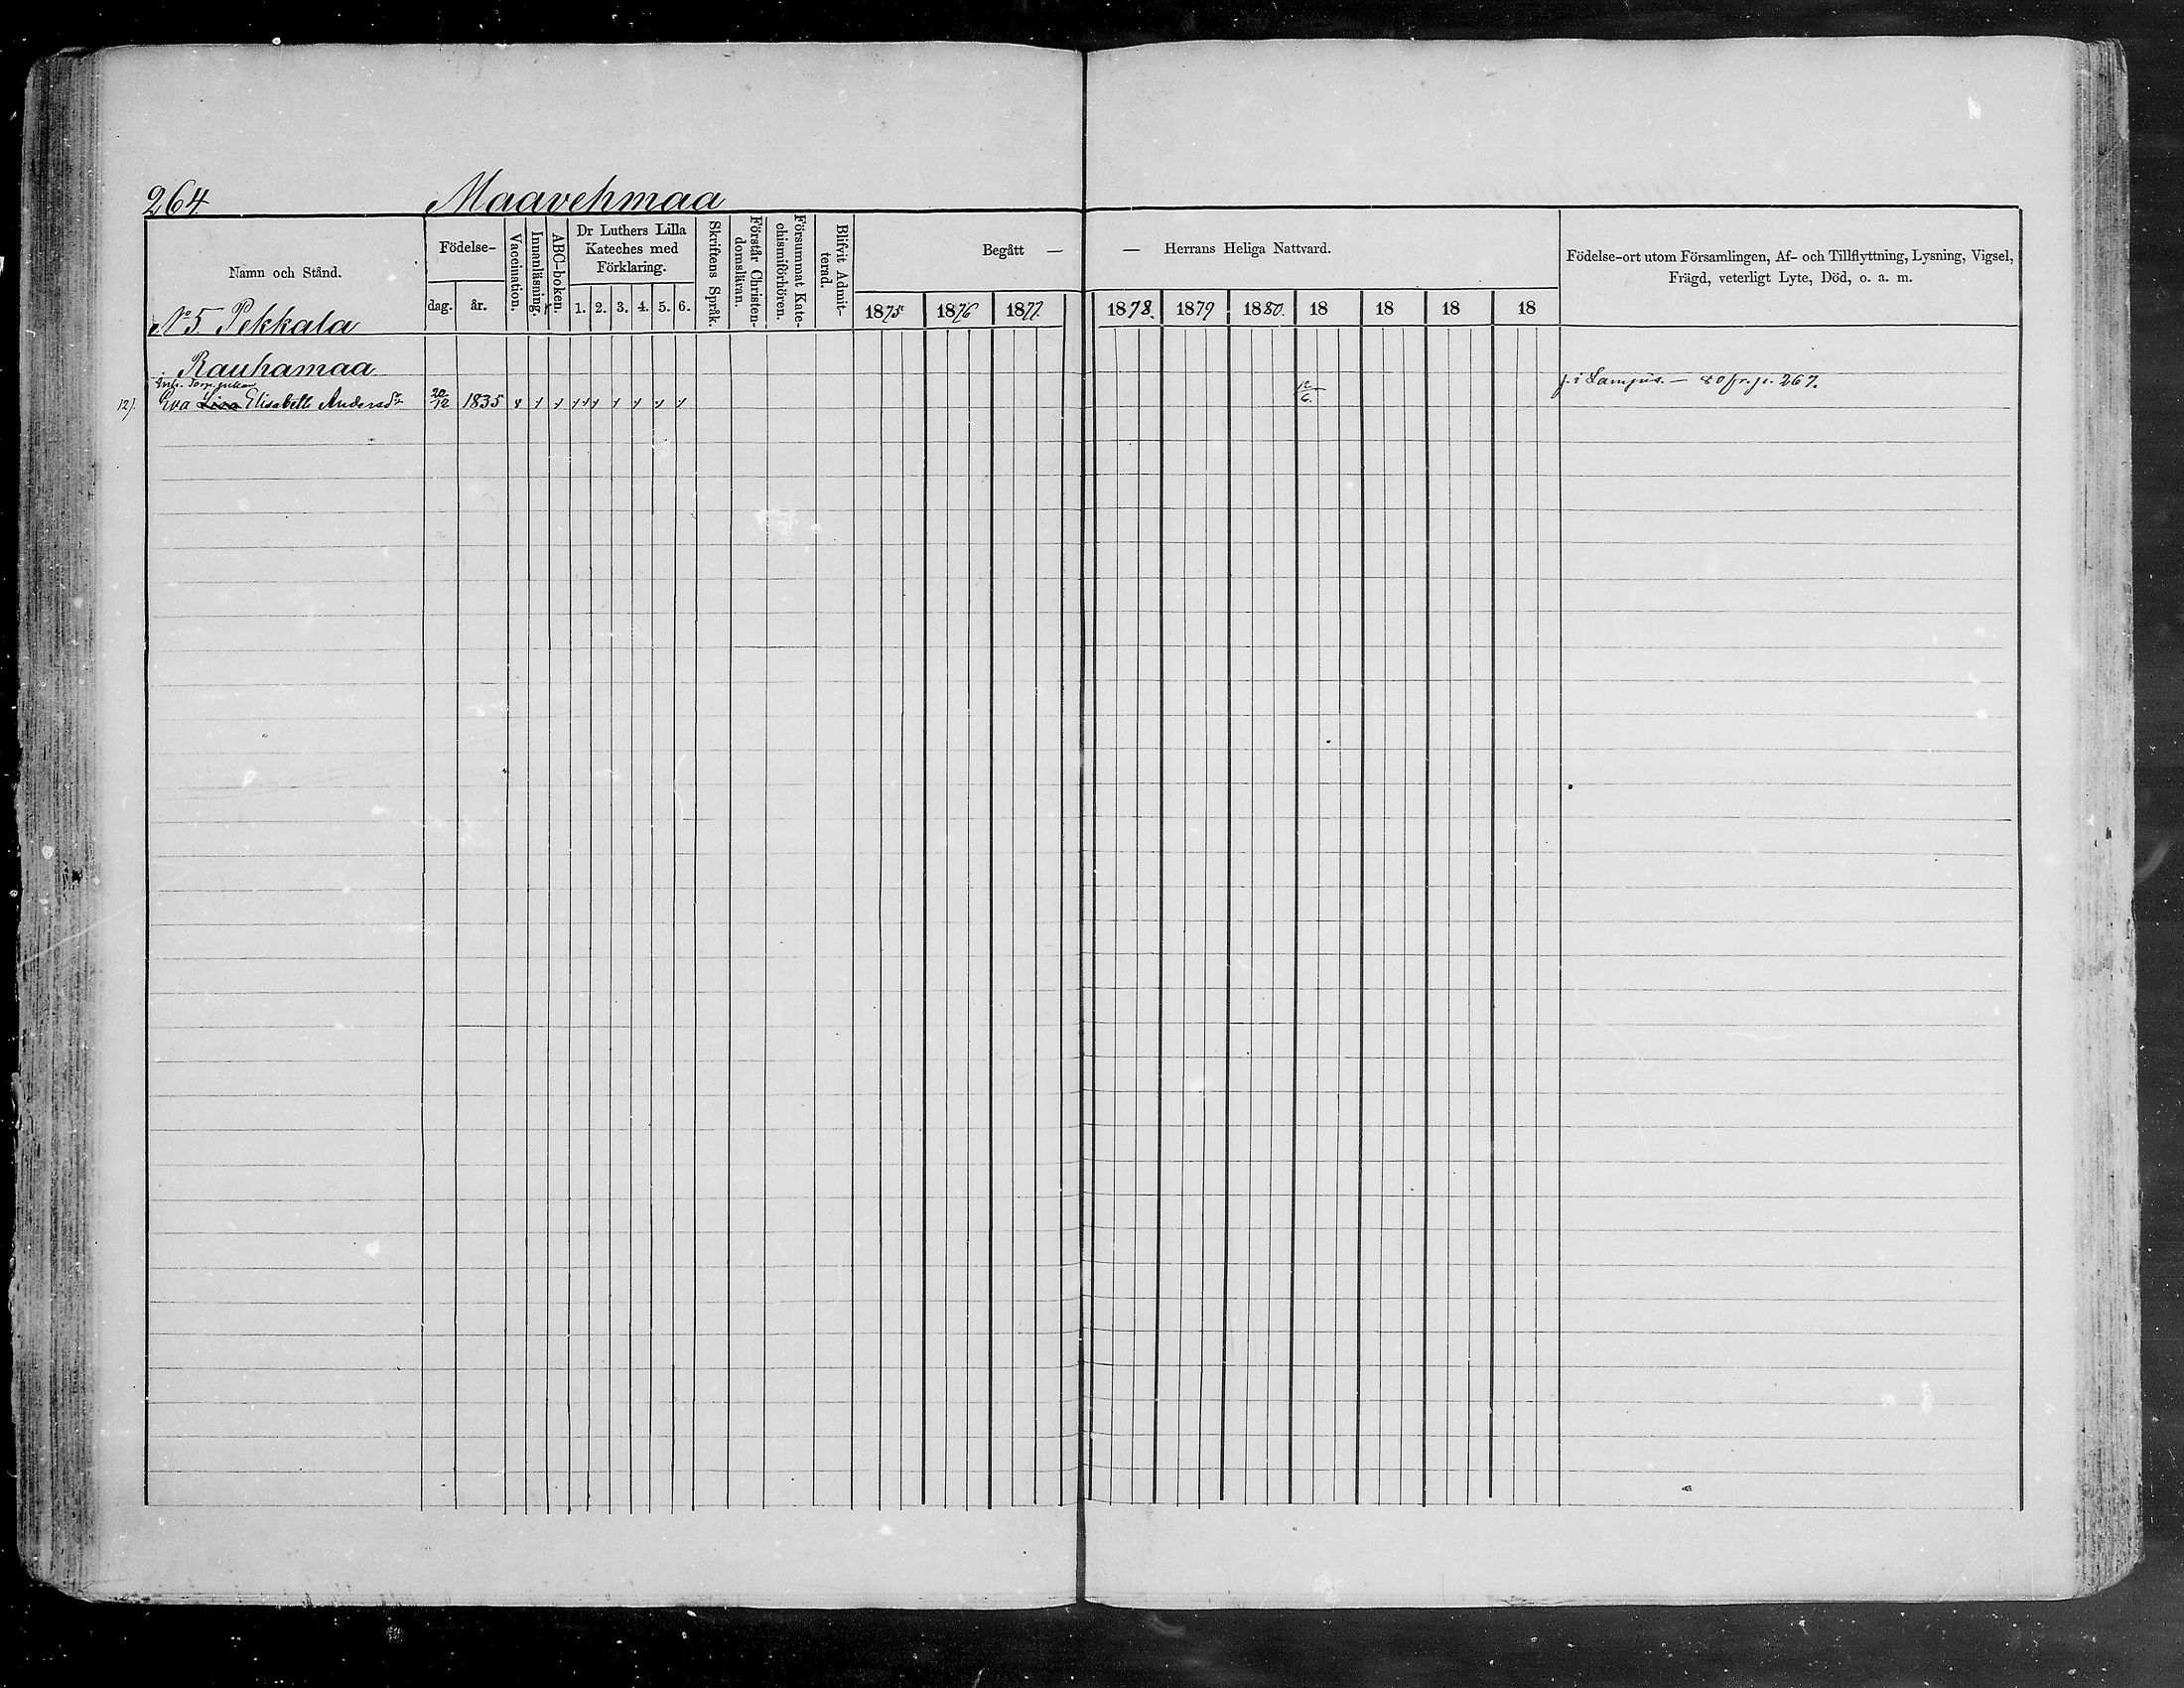 264. Maavehmaa
Namn och Stånd.
Födelse-
dag. år.
Vaccination.
Innanläsning.
ABC-boken.
Dr Luthers Lilla
Kateches med
Förklaring.
1. 2. 3. 4. 5. 6.
Skriftens Språk.
Förstår Christen-
domsläran.
Försummat Kate-
chismiförhören.
Blifvit Admit-
terad.
Begått —
— Herrans Heliga Nattvard.
1875 1876 1877. 1878. 1879 1880. 18 18 18 18
Födelse-ort utom Församlingen, Af- och Tillflyttning, Lysning, Vigsel,
Frägd, veterligt Lyte, Död, o. a. m.
No 5. Pekkala
Rauhamaa
12). Eva Liva Elisabeth Andersdr 20/12 1835 12/6. f. i Lampis. — 80 fr. p. 267.